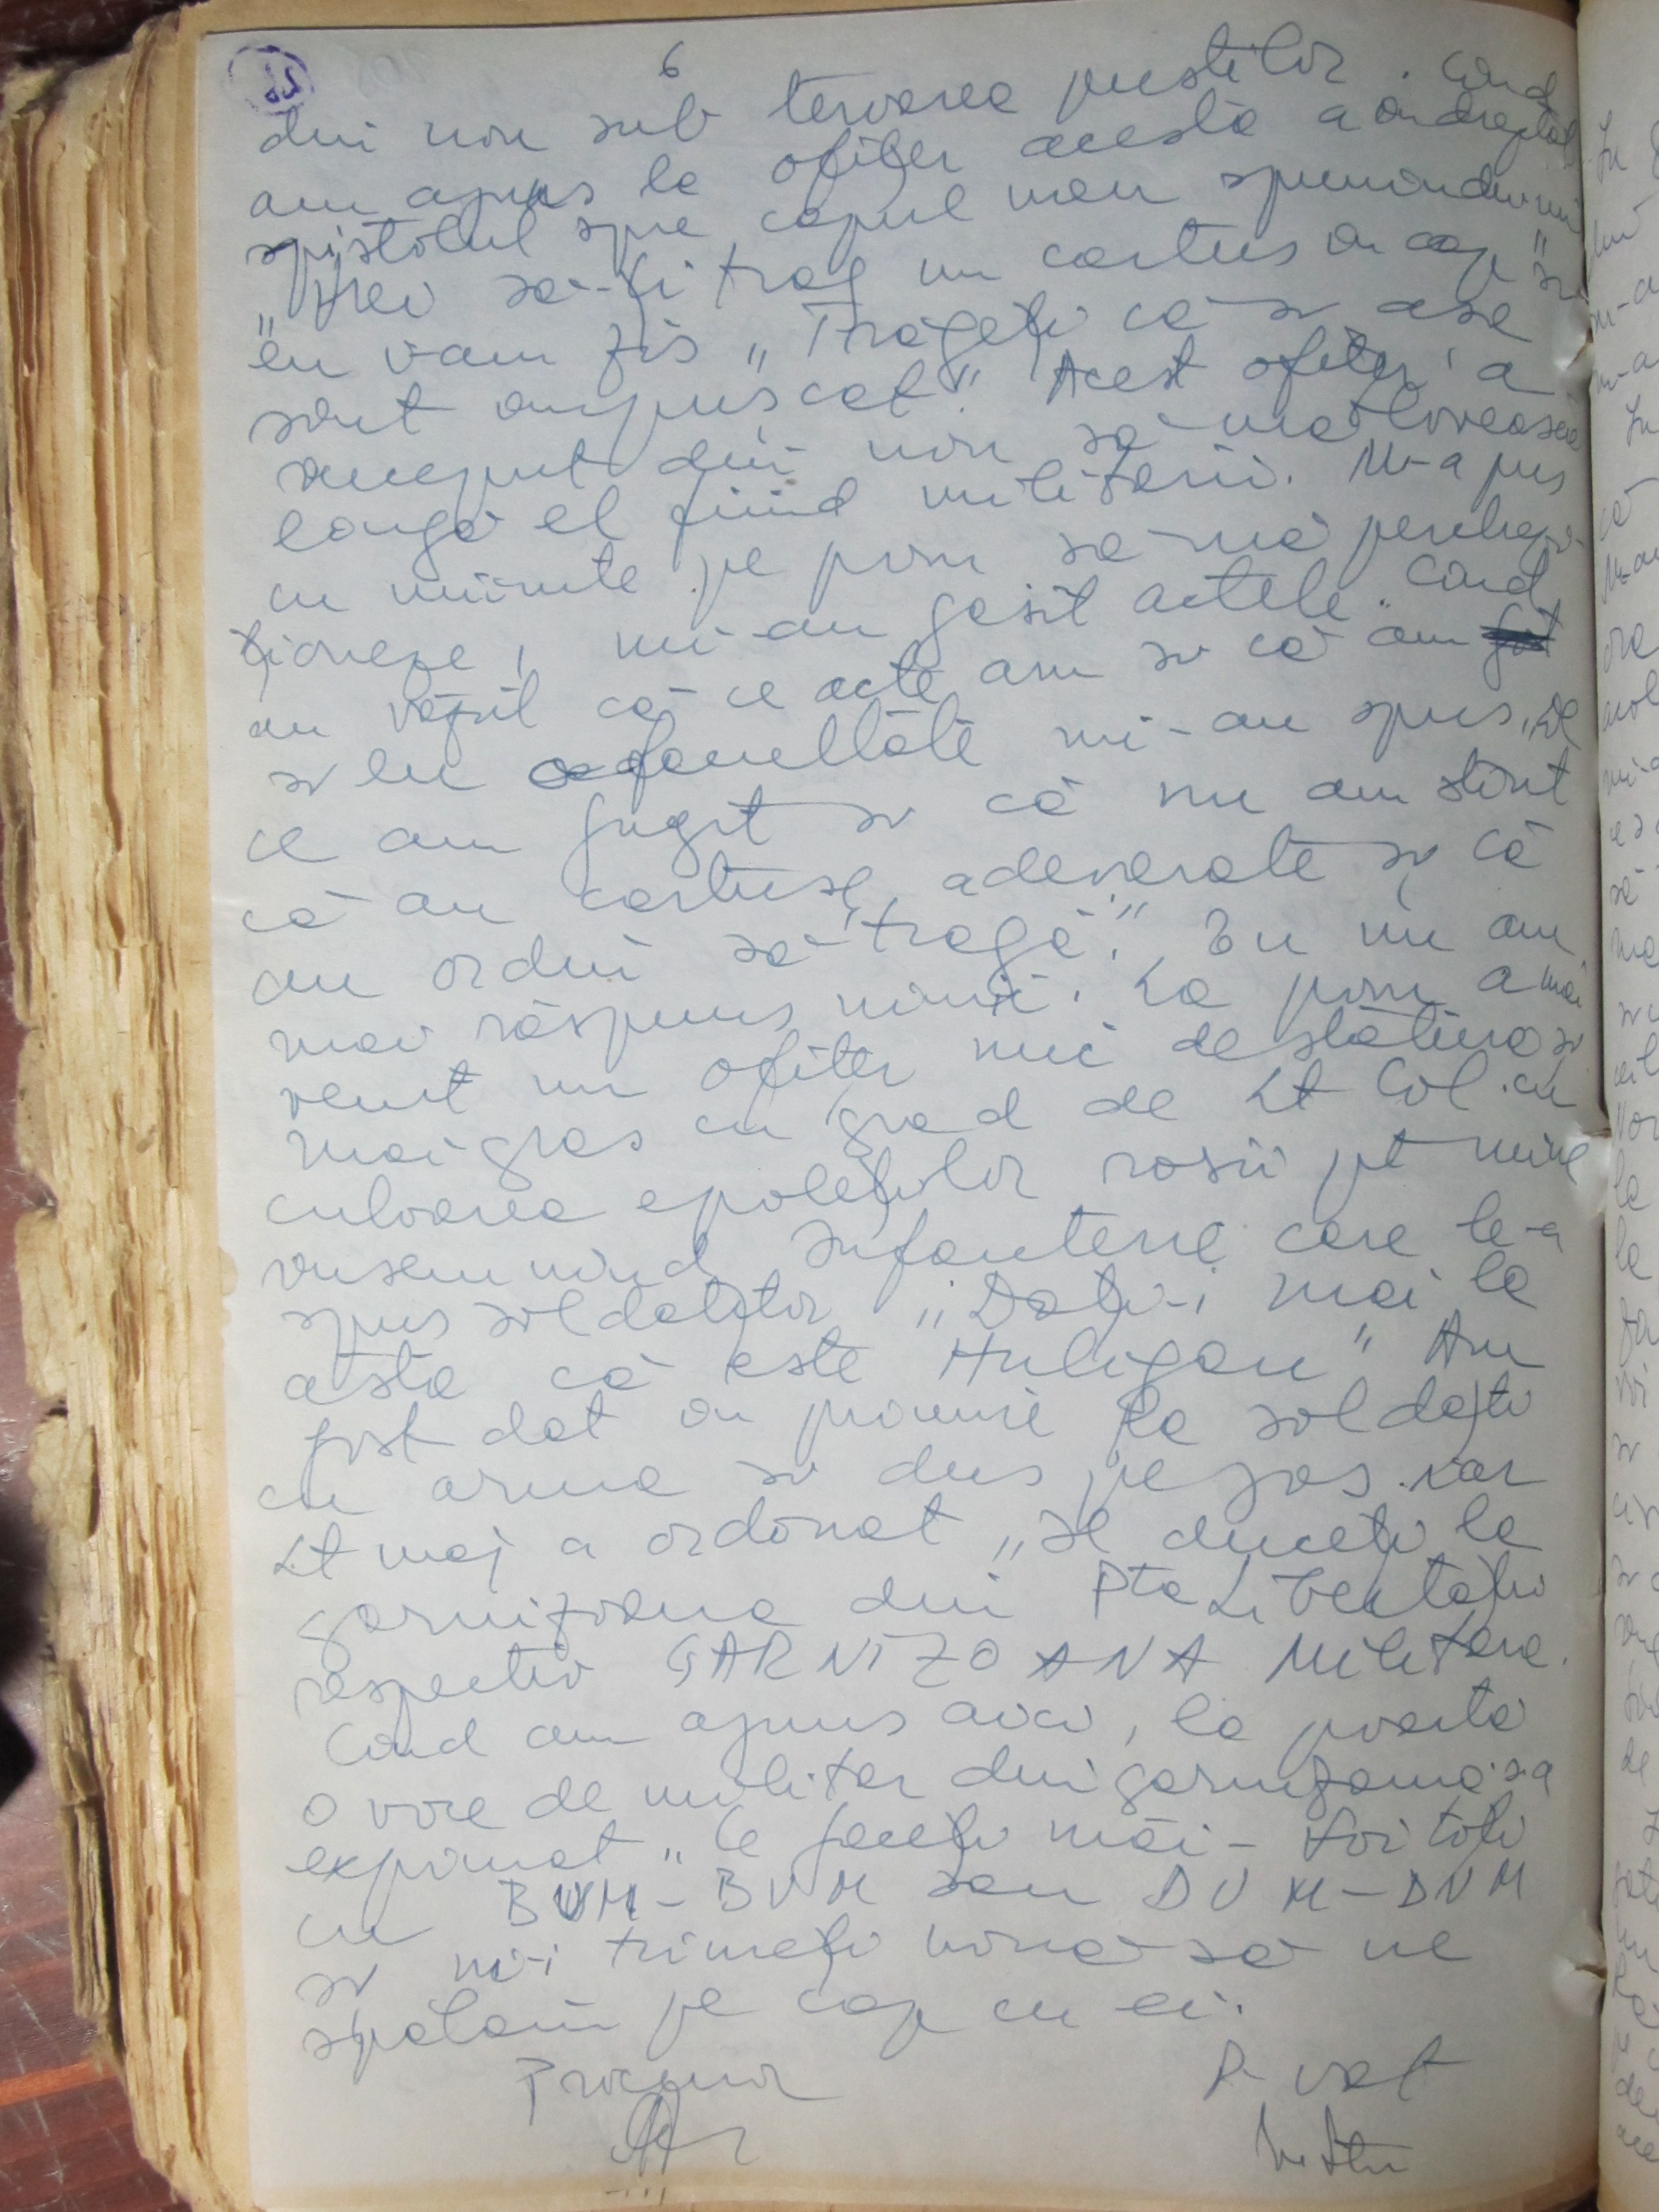 6
din nou sub teroarea pustilor. Cînd
am ajuns la ofiter acesta a îndreptat
pistolul spre capul meu spunîndumi
"Vrei sa-ți trag un cartus în cap" si
eu i-am zis "Trageți că si asa
sînt împușcat". Acest ofiter a
început din nou să mă lovească
lîngă el fiind militarii. M-a pus
cu mîinile pe pom să mă perchezi-
ționeze, mi-au găsit actele. Cînd
au văzut că ce acte am si că am
si eu facultate mi-au spus "De
ce am fugit si că nu am stiut
că au cartușe adevarate si că
au ordin să tragă." Eu nu am
mai răspuns nimic. La pom a mai
venit un ofiter mic de statura si
mai gras cu grad de Lt Col. cu
culoarea epoleților rosii pt mine
însemnînd infanterie care le-a
spus soldaților "Dați-i mai la
asta că este Huligan" Am
fost dat în primire la soldați
cu arma si dus pe jos iar
Lt maj a ordonat "Il duceți la
garnizoana din Pta Libertății
respectiv GARNIZOANA Militara.
Cînd am ajuns aici, la poarta
o voce de militar din garnizoană s-a
exprimat "Ce faceți măi - toi toți
cu BUM-BUM sau DUM-DUM
si ni-i trimeți nouă să ne
spalam pe cap cu ei.
Procuror